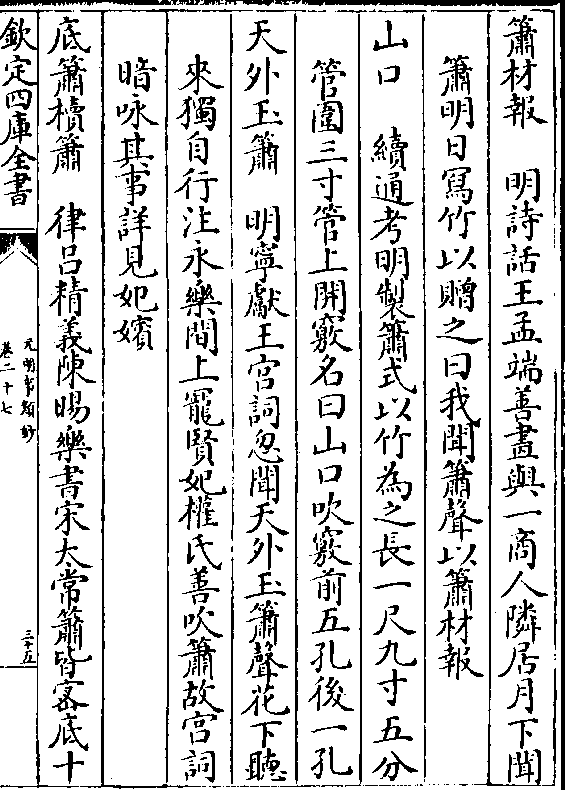 簫材報　明詩話王孟端善畫與一商人隣居月下聞
簫明日寫竹以贈之曰我聞簫聲以簫材報
山口　續通考明製簫式以竹為之長一尺九寸五分
管圍三寸管上開竅名曰山口吹竅前五孔後一孔
天外玉簫　明寧獻王宮詞忽聞天外玉簫聲花下聽
來獨自行注永樂間上寵賢妃權氏善吹簫故宮詞
暗咏其事詳見妃嬪
底簫櫝簫　律呂精義陳暘樂書宋太常簫皆密底十
欽定四庫全書
元明事類鈔
卷二十七
三十五